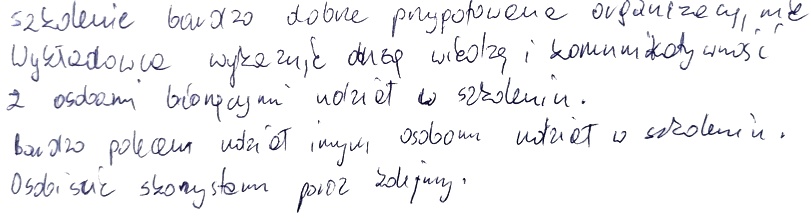 szkolenie bardzo dobrze przygotowane organizacyjnie
Wykładowca wykazuję dużą wiedzę i komunikatywność
z osobami biorącymi udział w szkoleniu.
Bardzo polecam udział innym osobom udział w szkoleniu.
Osobiście skorzystam poraz kolejny.